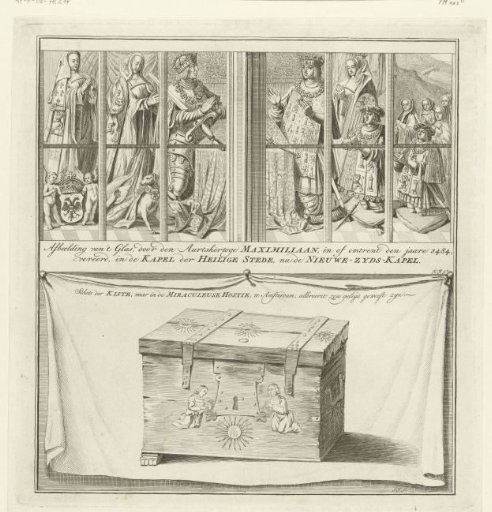 Afbeelding van 't Glas, door den Aartshertoge MAXIMILIAAN, in of omtrent den jaare 1484.
vereert, in de KAPEL der HEILIGE STEDE, nu de NIEUWE-ZYDS-KAPEL.
der KISTE, waar in de MIRACULEUSE HOSTIE, te Amsterdam, zou geweest zyn